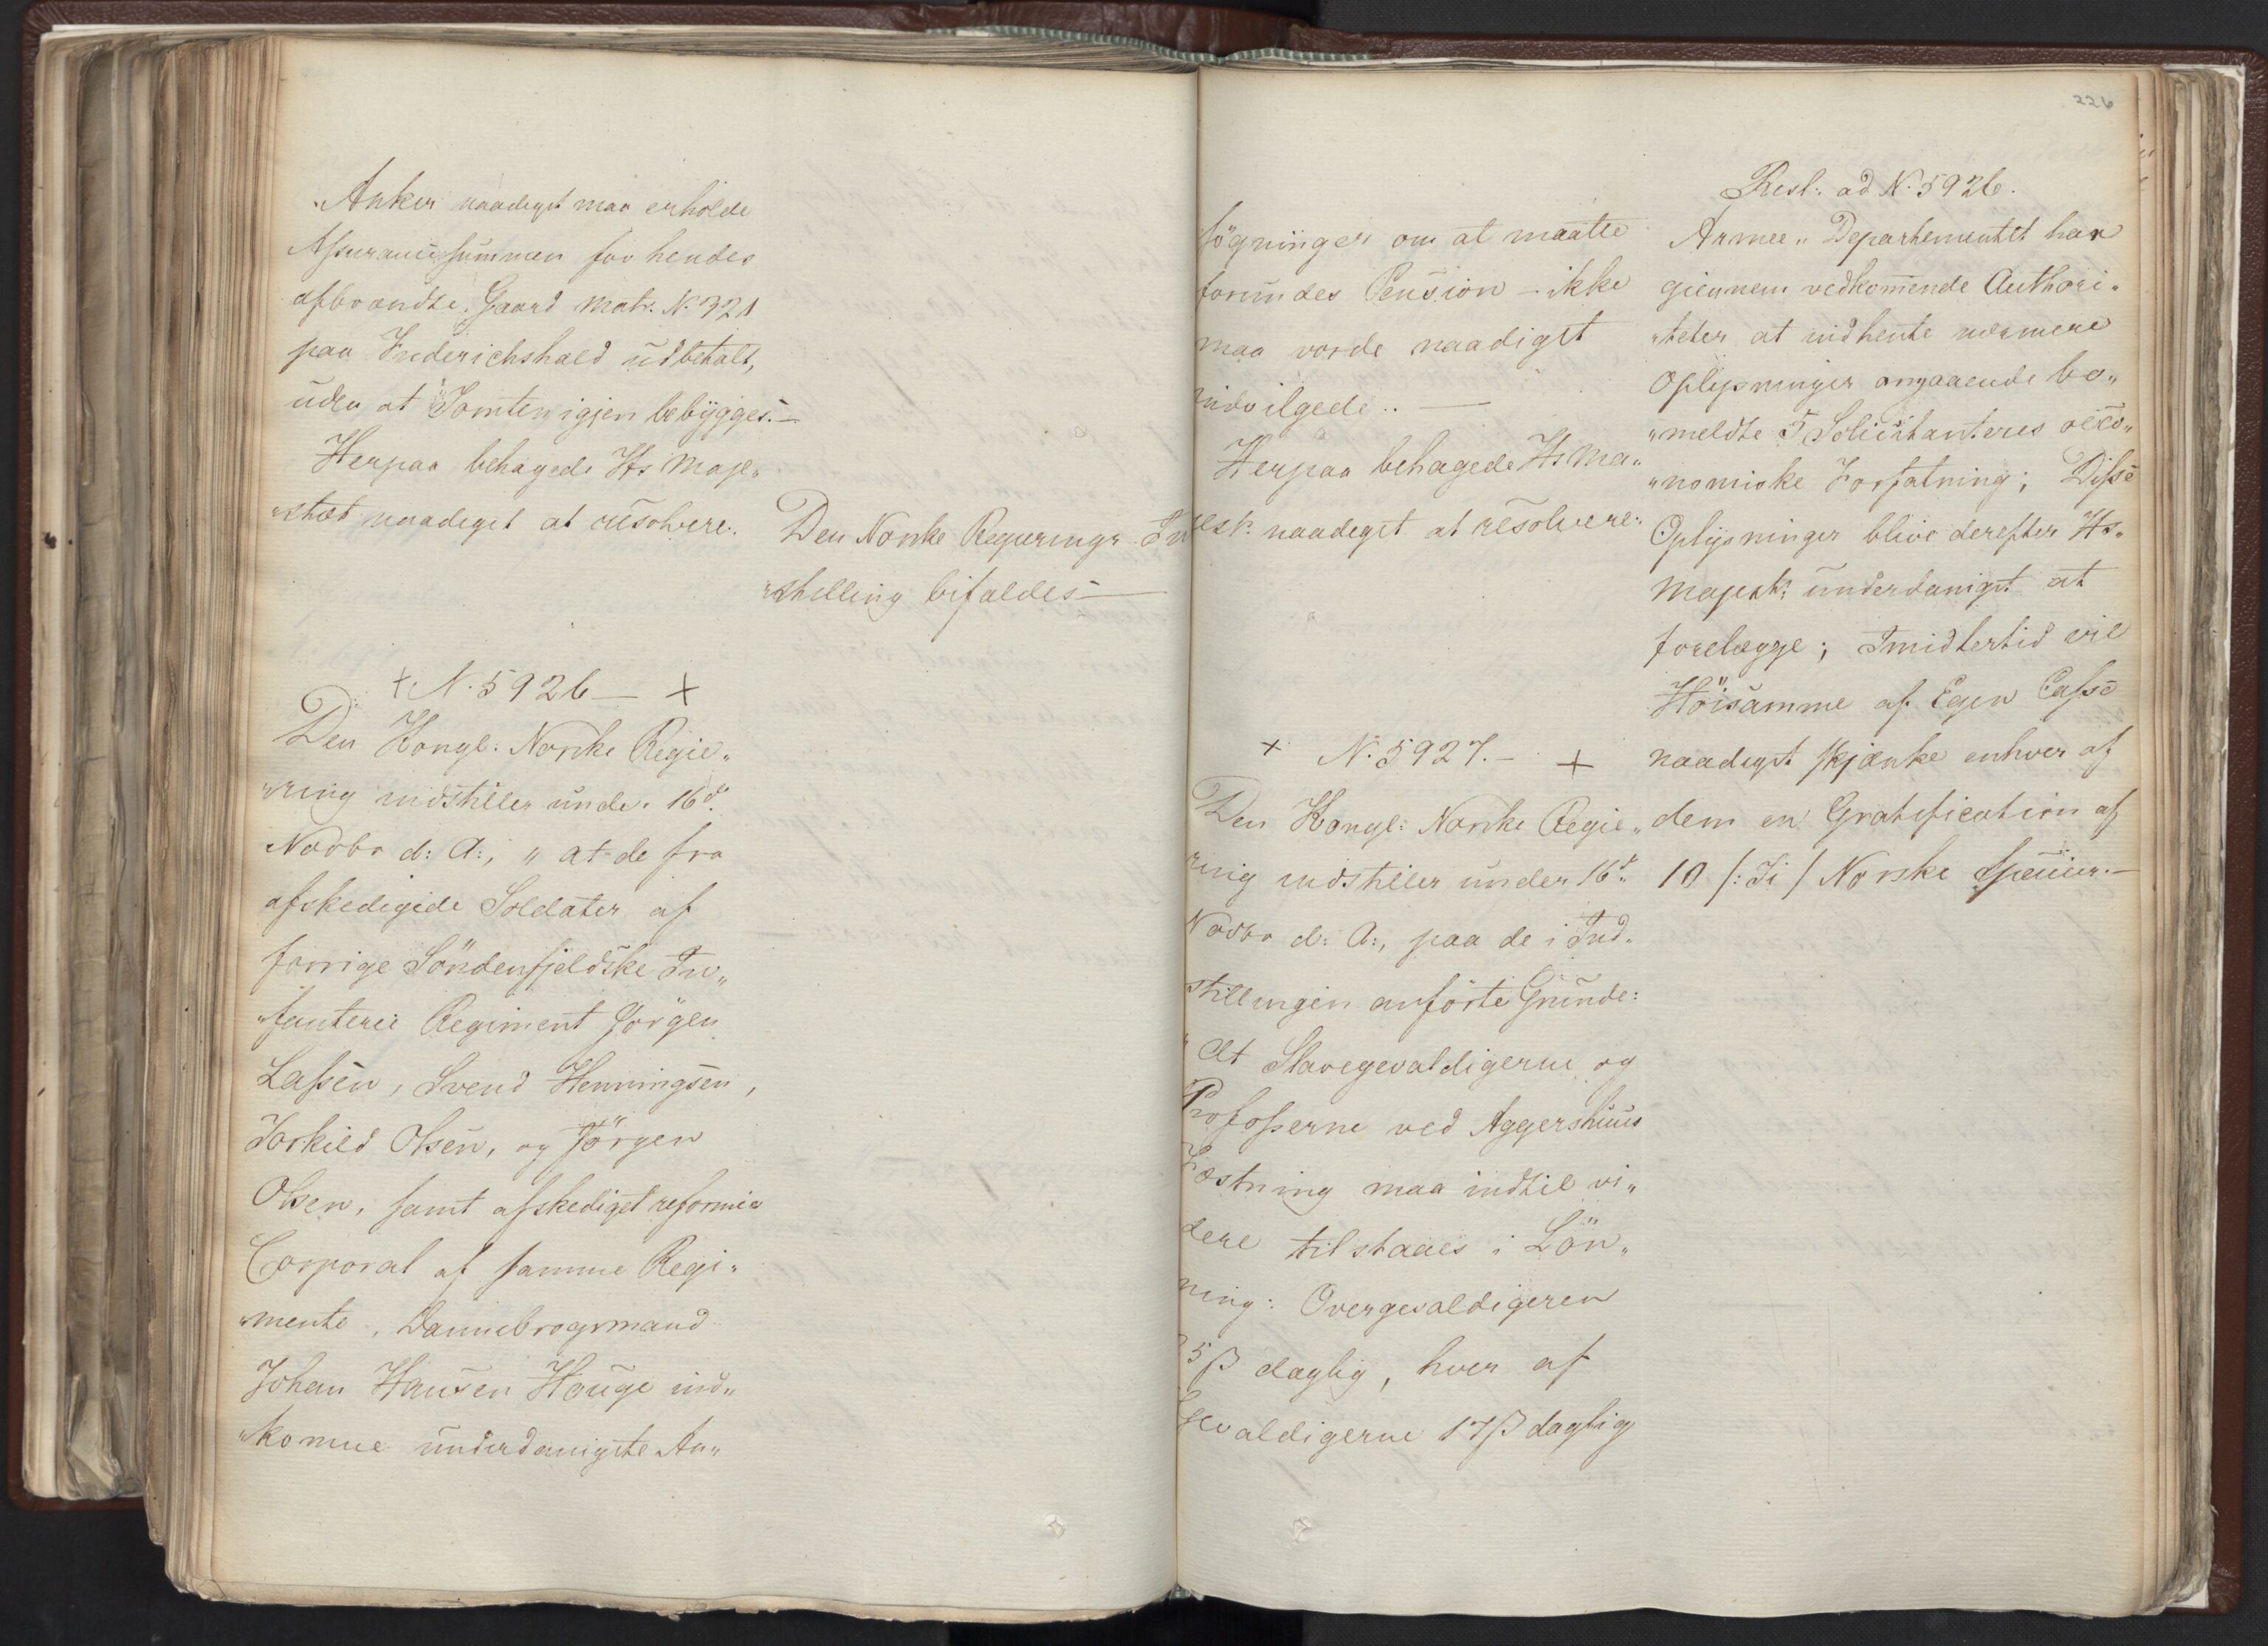 Anker naadigst maa erholde
Assurancesummen for hendes
afbrændte Gaard Matr. N. 321
paa Friderichshald udbetalt,
uden at Tomten igjen bebygges.—
Herpaa behagede Hs Maje„
„stæt naadigst at resolvere.
Den Norske Regjerings In
„stilling bifaldes—
+ N. 5926— +
Den Kongl: Norske Regie„
„ring indstiller under 16d.
Novbr d: A:, „ at de fra
afskedigede Soldater af
forrige Söndenfjeldske In„
„fanterie Regiment Jörgen
Lassen, Svend Henningsen,
Torkild Olsen, og Jörgen
Olsen, samt afskediget reformeret
Corporal af samme Regi„
„mente, Dannebrogsmand
Johan Hansen Houge ind„
„komne underdanigste An„
226
søgninger om at maatte
forundes Pension — ikke
maa vorde naadigst
indvilgede.. —
Herpaa behagede Hs Ma„
jest. naadigst at resolvere:
+ N. 5927.— +
Den Kongl: Norske Regie„
ring indstiller under 16d.
Novbr d: A:, paa de i Ind„
stillingen anförte Grunde:
„At Slavegevaldigerne og
Profosserne ved Aggershuus
Fæstning maa indtil vi„
dere tilstaaes i Lön„
ning: Overgevaldigeren
25 β daglig, hver af
Gevaldigerne 17β daglig
Resl: ad N. 5926.
Armee„ Departementet har
giennem vedkommende Authori„
„teter at indhente nærmere
Oplysninger angaaende be„
„meldte 5 Solicitanteres oeco„
„nomiske Forfatning; Disse
Oplysninger blive derefter Hs.
Majest: underdanigst at
forelægge; Imidlertid vil
Höisamme af Egen Casse
naadigst skjænke enhver af
dem en Gratification af
10 /: Ti / Norske Specier.—